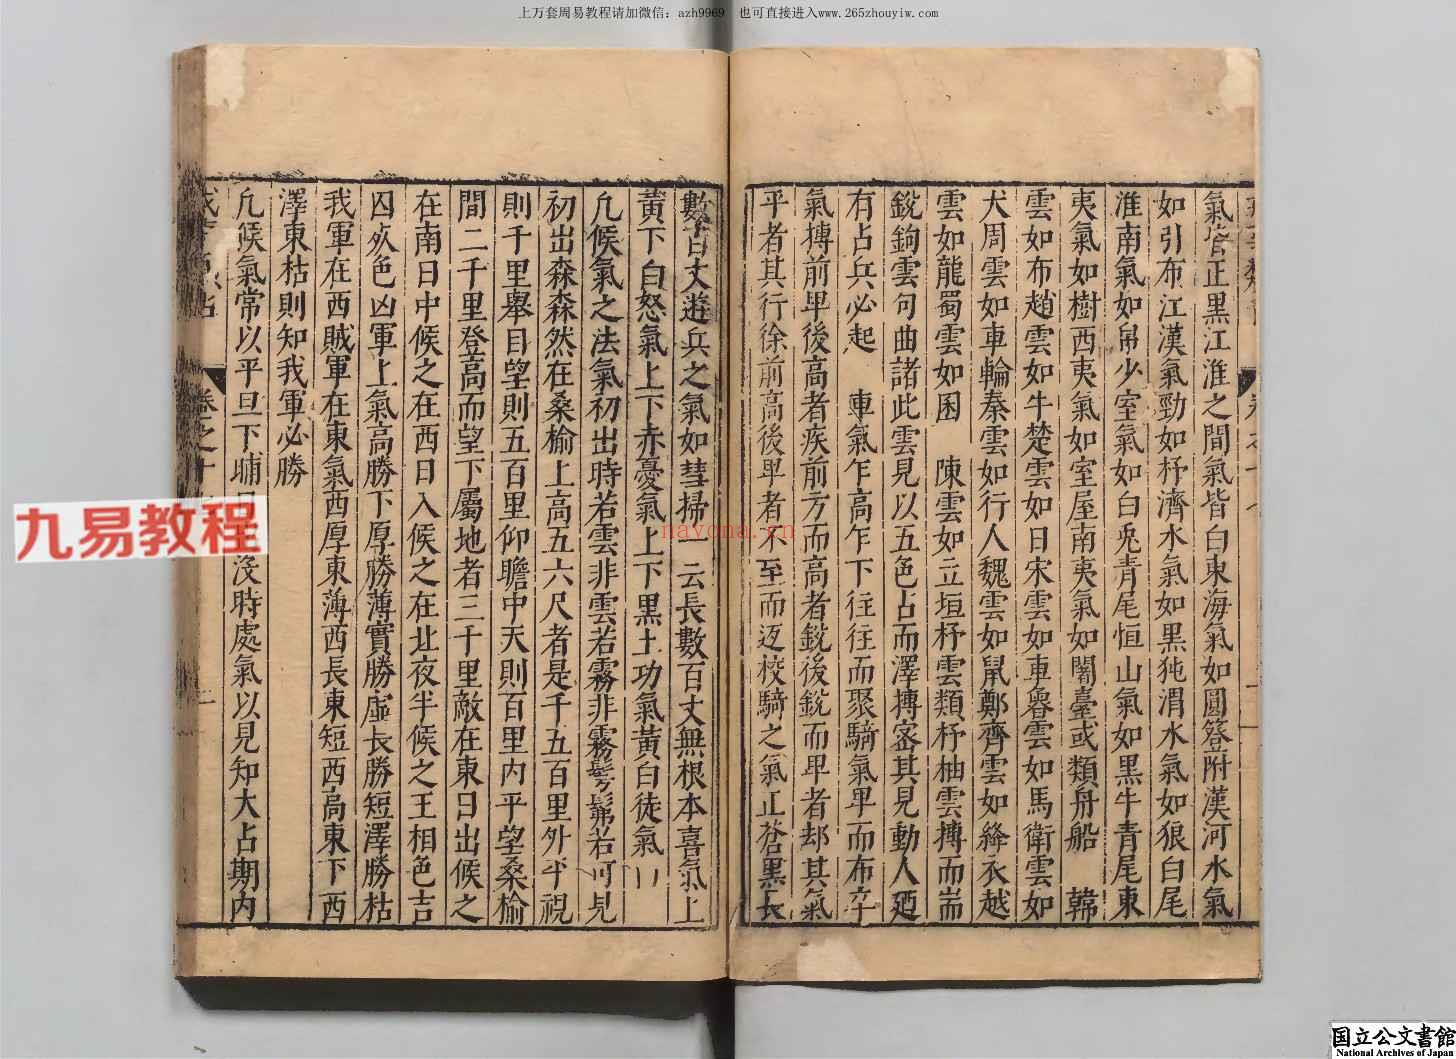 上万套周易教程请加微信：azh9969　也可直接进入www.265zhouyiw.com
氣皆正黑江淮之間氣皆白東海氣如圓簦附漢河水氣
如引布江漢氣勁如杼濟水氣如黑㹠渭水氣如狼白尾
淮南氣如帛少室氣如白兎青尾恒山氣如黑牛青尾東
夷氣如樹西夷氣如室屋南夷氣如闍臺或類舟船　韓
雲如布趙雲如牛楚雲如日宋雲如車魯雲如馬衛雲如
犬周雲如車輪秦雲如行人魏雲如鼠鄭齊雲如絳衣越
雲如龍蜀雲如囷　陳雲如立垣杼雲類杼柚雲摶而耑
銳鉤雲句曲諸此雲見以五色占而澤摶密其見動人廼
有占兵必起　車氣乍高乍下往往而聚騎氣卑而布卒
氣摶前卑後高者疾前方而高者銳後銳而卑者却其氣
平者其行徐前高後卑者不至而返校騎之氣正蒼黑長
數百丈遊兵之氣如彗掃一云長數百丈無根本喜氣上
黃下白怒氣上下赤憂氣上下黑土功氣黃白徒氣白
凡候氣之法氣初出時若雲非雲若霧非霧髣髴若可見
初出森森然在桑榆上高五六尺者是千五百里外平視
則千里舉目望則五百里仰瞻中天則百里内平望桑榆
間二千里登高而望下屬地者三千里敵在東日出候之
在南日中候之在西日入候之在北夜半候之王相色吉
囚死色凶軍上氣高勝下厚勝薄實勝虛長勝短澤勝枯
我軍在西賊軍在東氣西厚東薄西長東短西高東下西
澤東枯則知我軍必勝
凡候氣常以平旦下晡日
没時處氣以見知大占期内
卷之十
九易教程
nayona.cn
国立公文書館
National Archives of Japan